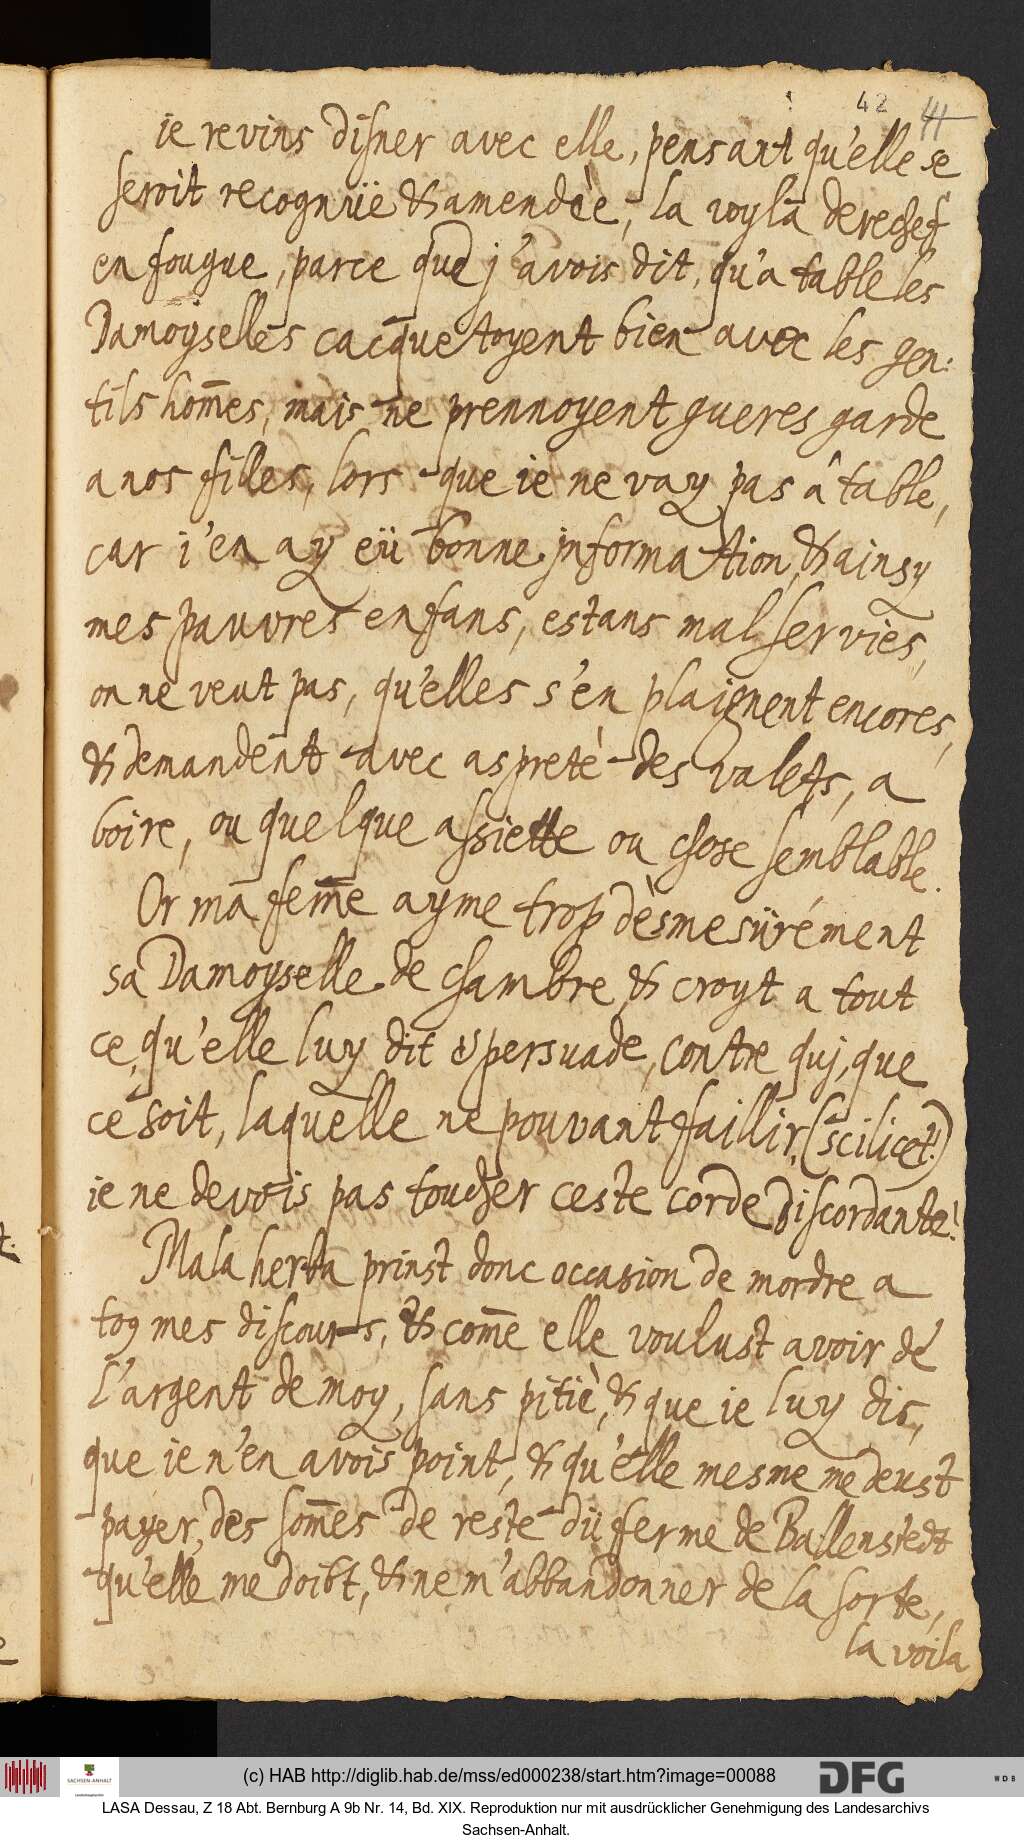 42 44
ie revins disner avec elle, pensant qu'elle se
seroit recognuë & amendèe, la voyla derechef
en fougue, parce que j'avois dit, qu'a table les
Damoyselles cacquetoyent bien avec les gen:
tils hom̄es, mais ne prennoyent gueres garde
a nos filles, lors que ie ne vay pas â table,
car i'en ay eü bonne jnformation, & ainsy
mes pauvres enfans, estans mal servies,
on ne veut pas, qu'elles s'en plaignent encores,
& demandent avec aspretè des valets, a
boire, ou quelque assiette ou chose semblable.
Or ma fem̄e ayme trop dèsmesürément
sa Damoyselle de chambre & croyt a tout
ce, qu'elle luy dit & persuade, contre quj, que
ce soit, laquelle ne pouvant faillir, (scilicet!)
ie ne devois pas toucher ceste corde discordante!
Mala herba prinst donc occasion de mordre a
toy mes discours, & com̄e elle voulust avoir de
l'argent de moy, sans pitiè, & que ie luy dis,
que ie n'en avois point, & qu'elle mesme me deust
payer, des som̄es de reste dü ferme de Ballenstedt
qu'elle me doibt, & ne m'abbandonner de la sorte,
la voila
(c) HAB http://diglib.hab.de/mss/ed000238/start.htm?image=00088
SACHSEN-ANHALT
DFG
WDB
LASA Dessau, Z 18 Abt. Bernburg A 9b Nr. 14, Bd. XIX. Reproduktion nur mit ausdrücklicher Genehmigung des Landesarchivs
Sachsen-Anhalt.